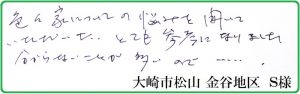 色々家についての悩みを聞いて
いただいた。とても参考になりました
分らないことが多いので……。
大崎市松山 金谷地区 S様